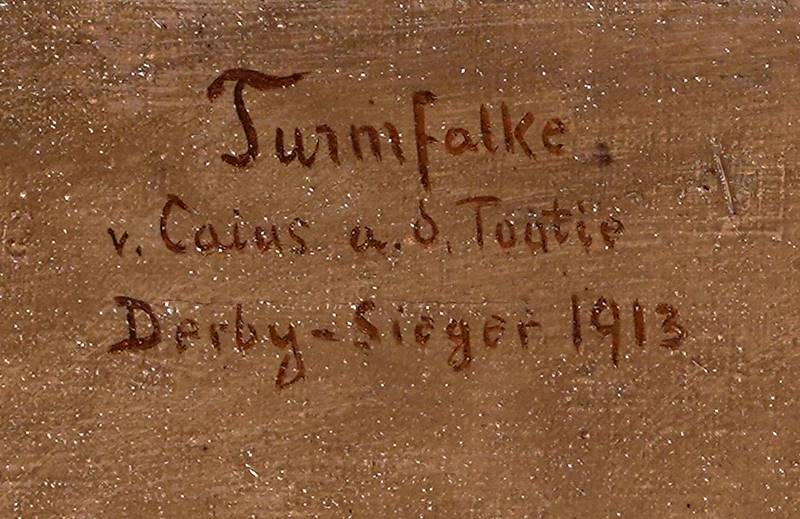 Turmfalke.
v. Caius a. d. Tootie
Derby-Sieger 1913